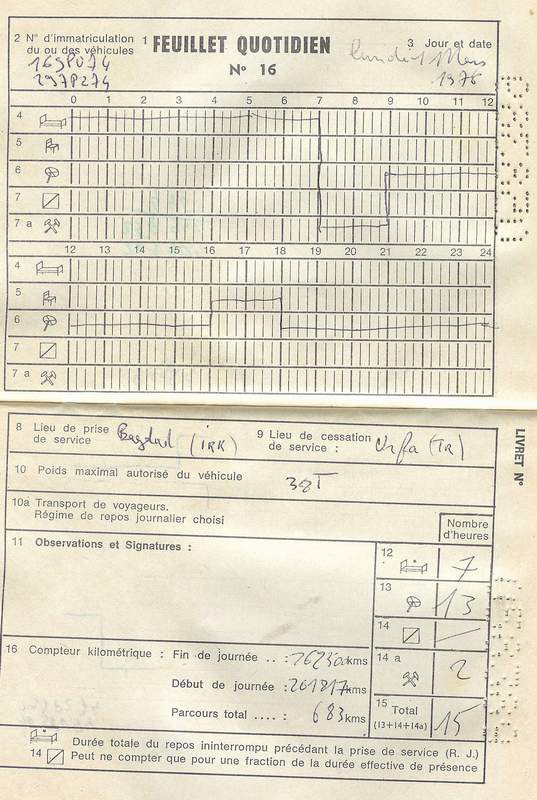 2 N° d'immatriculation du ou des véhicules
1 FEUILLET QUOTIDIEN
N° 16
3 Jour et date
169PU74
297P274
lundi 1 Mars
1976
0 1 2 3 4 5 6 7 8 9 10 11 12
4
5
6
7
7 a
12 13 14 15 16 17 18 19 20 21 22 23 24
4
5
6
7
7 a
8 Lieu de prise de service
Bagdad (IRK)
9 Lieu de cessation de service :
Urfa (TR)
10 Poids maximal autorisé du véhicule
38T
10a Transport de voyageurs.
Régime de repos journalier choisi
Nombre d'heures
11 Observations et Signatures :
12 7
13 13
14 —
14 a 2
15 Total (13+14+14a) 15
16 Compteur kilométrique : Fin de journée .. : kms
Début de journée : 261817 kms
Parcours total .... : 683 kms
Durée totale du repos ininterrompu précédant la prise de service (R. J.)
14 Peut ne compter que pour une fraction de la durée effective de présence
LIVRET N°